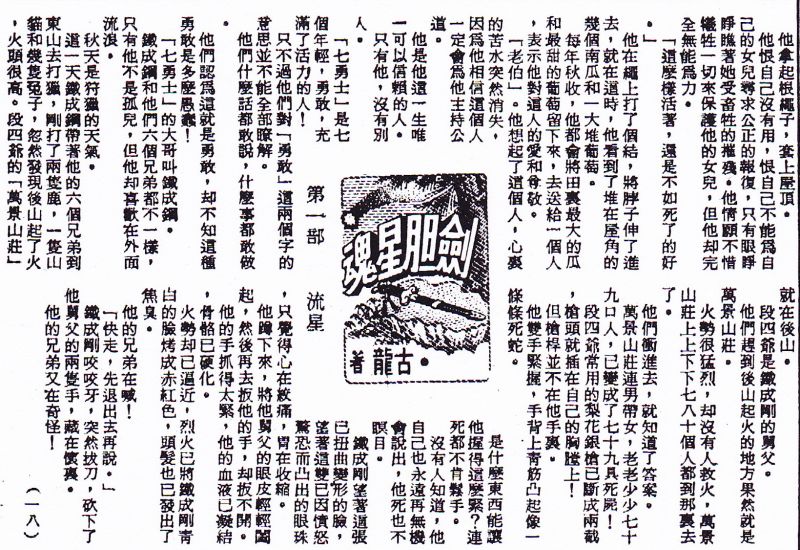 他拿起根繩子，套上屋頂。
他恨自己沒有用，恨自己不能爲自
己的女兒尋求公正的報復，只有眼睜
睜瞧著她受畜牲的摧殘。他情願不惜
犧牲一切來保護他的女兒，但他却完
全無能爲力。
「這麼樣活著，還是不如死了的好
。」
他在繩上打了個結，將脖子伸了進
去，就在這時，他看到了堆在屋角的
幾個南瓜和一大堆葡萄。
每年秋收，他都會將田裏最大的瓜
和最甜的葡萄留下來，去送給一個人
，表示他對這人的愛和尊敬。
「老伯」。他想起了這個人，心裏
的苦水突然消失，
因爲他相信這個人
一定會爲他主持公
道。
他是他這一生唯
一可以信賴的人。
只有他，沒有別
人。
「七勇士」是七
個年輕，勇敢，充
滿了活力的人！
只不過他們對「勇敢」這兩個字的
意思並不能全部瞭解。
他們什麼話都敢說，什麼事都敢做
。
他們認爲這就是勇敢，却不知這種
勇敢是多麼愚蠢！
「七勇士」的大哥叫鐵成鋼。
鐵成鋼和他們六個兄弟都不一樣，
只有他不是孤兒，但他却喜歡在外面
流浪。
秋天是狩獵的天氣。
這一天鐵成鋼帶著他的六個兄弟到
東山去打獵，剛打了兩隻鹿，一隻山
貓和幾隻兔子，忽然發現後山起了火
，火頭很高。段四爺的「萬景山莊」
劍胆星魂
古龍•著
第一部　流星
就在後山。
段四爺是鐵成剛的舅父。
他們趕到後山起火的地方果然就是
萬景山莊。
火勢很猛烈，却沒有人救火，萬景
山莊上上下下七八十個人都到那裏去
了。
他們衝進去，就知道了答案。
萬景山莊連男帶女，老老少少七十
九口人，已變成了七十九具死屍！
段四爺常用的梨花銀槍已斷成兩截
，槍頭就插在自己的胸膛上！
但槍桿並不在他手裏。
他雙手緊握，手背上靑筋凸起像一
條條死蛇。
是什麼東西能讓
他握得這麼緊？連
死都不肯鬆手。
沒有人知道，他
自己也永遠再無機
會說出，他死也不
瞑目。
鐵成剛望著這張
已扭曲變形的臉，
望著這雙已因憤怒
驚恐而凸出的眼珠
，只覺得心在絞痛，胃在收縮。
他蹲下來，將他舅父的眼皮輕輕闔
起，然後再去扳他的手，却扳不開。
他的手抓得太緊，他的血液已凝結
，骨骼已硬化。
火勢却已逼近，烈火已將鐵成剛靑
白的臉烤成赤紅色，頭髮也已發出了
焦臭。
他的兄弟在喊！
「快走，先退出去再說。」
鐵成剛咬咬牙，突然拔刀，砍下了
他舅父的兩隻手，藏在懷裏。
他的兄弟又在奇怪！
（一八）